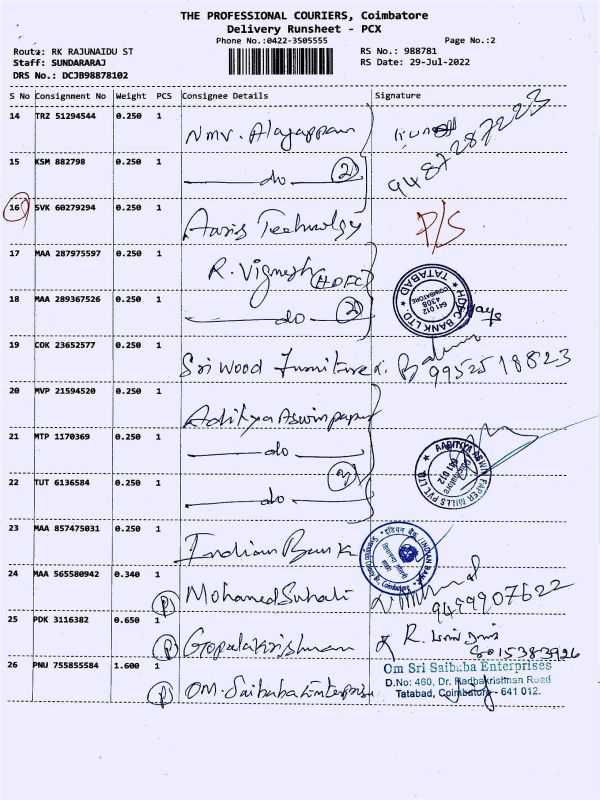 THE PROFESSIONAL COURIERS, Coimbatore
Delivery Runsheet - PCX
Phone No.:0422-3505555 Page No.:2
Route: RK RAJUNAIDU ST RS No.: 988781
Staff: SUNDARARAJ RS Date: 29-Jul-2022
DRS No.: DCJB98878102
S No Consignment No Weight PCS Consignee Details Signature
14 TRZ 51294544 0.250 1 Nmv. Alagappan
9487287223
15 KSM 882798 0.250 1 do 2
16 SVK 60279294 0.250 1 Aaris Technology P/S
17 MAA 287975597 0.250 1 R. Vignesh (HDFC)
HDFC BANK LTD. TATABAD
4308
641 012
COIMBATORE
18 MAA 289367526 0.250 1 do 2
19 COK 23652577 0.250 1 Sri Wood Furniture
9952518823
20 MVP 21594520 0.250 1 Aditya Aswin paper
21 MTP 1170369 0.250 1 do
AADITYA ASWIN PAPER MILLS PVT. LTD.
Coimbatore
641 012
22 TUT 6136584 0.250 1 do
23 MAA 857475031 0.250 1 Indian Bank
इंडियन बैंक / INDIAN BANK
24 MAA 565580942 0.340 1 P Mohamed Suhali
9499907622
25 PDK 3116382 0.650 1 P Gopalakrishnan
8015383926
26 PNU 755855584 1.600 1 P OM. Saibaba Enterprise
Om Sri Saibaba Enterprises
D.No: 460, Dr. Radhakrishnan Road
Tatabad, Coimbatore - 641 012.